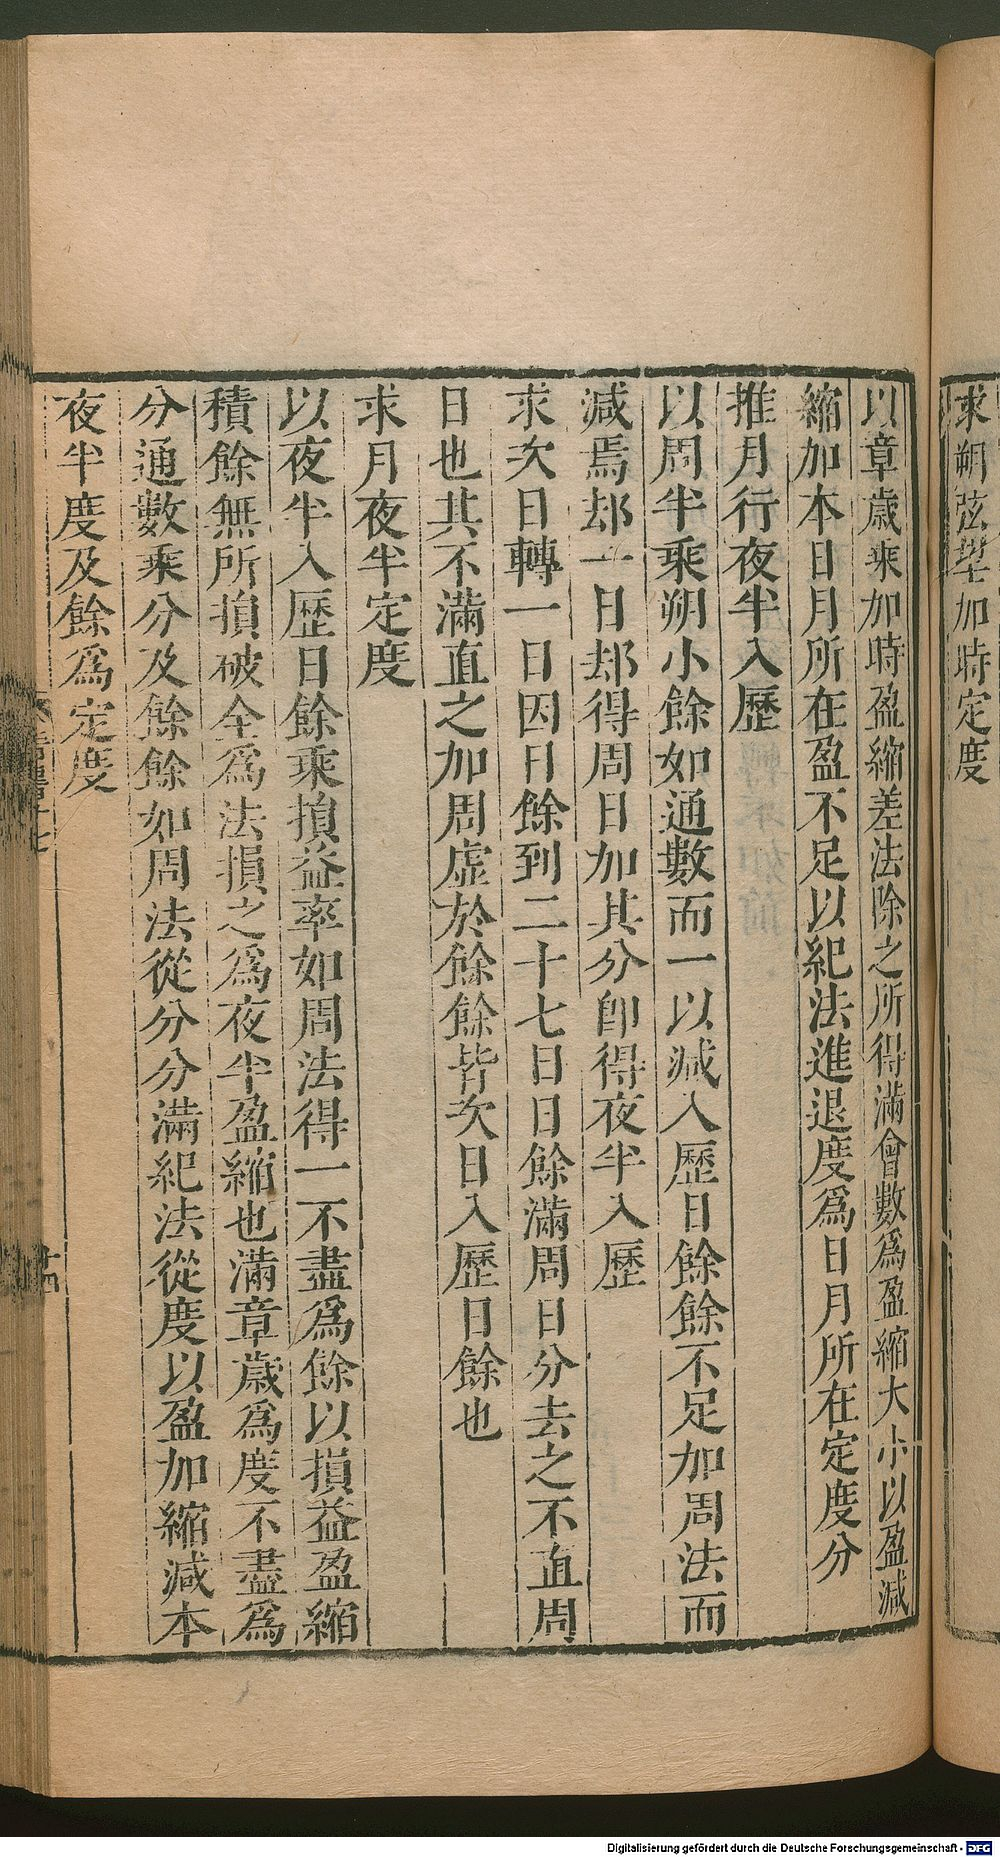 求朔弦望加時定度
以章歲乘加時盈縮差法除之所得滿會數爲盈縮大小以盈減
縮加本日月所在盈不足以紀法進退度爲日月所在定度分
推月行夜半入歷
以周半乘朔小餘如通數而一以減入歷日餘餘不足加周法而
減焉却一日却得周日加其分卽得夜半入歷
求次日轉一日因日餘到二十七日日餘滿周日分去之不直周
日也其不滿直之加周虛於餘餘皆次日入歷日餘也
求月夜半定度
以夜半入歷日餘乘損益率如周法得一不盡爲餘以損益盈縮
積餘無所損破全爲法損之爲夜半盈縮也滿章歲爲度不盡爲
分通數乘分及餘餘如周法從分分滿紀法從度以盈加縮減本
夜半度及餘爲定度
十四
Digitalisierung gefördert durch die Deutsche Forschungsgemeinschaft - DFG